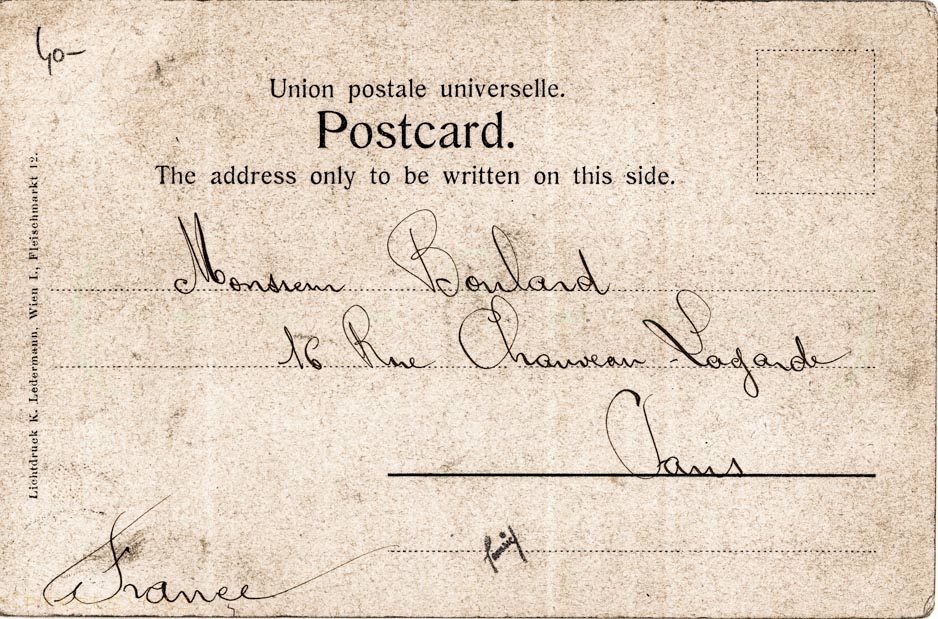 40-
Union postale universelle.
Postcard.
The address only to be written on this side.
Monsieur Boulard
16 Rue Chauveau-Lagarde
Paris
France
Lichtdruck K. Ledermann, Wien I., Fleischmarkt 12.